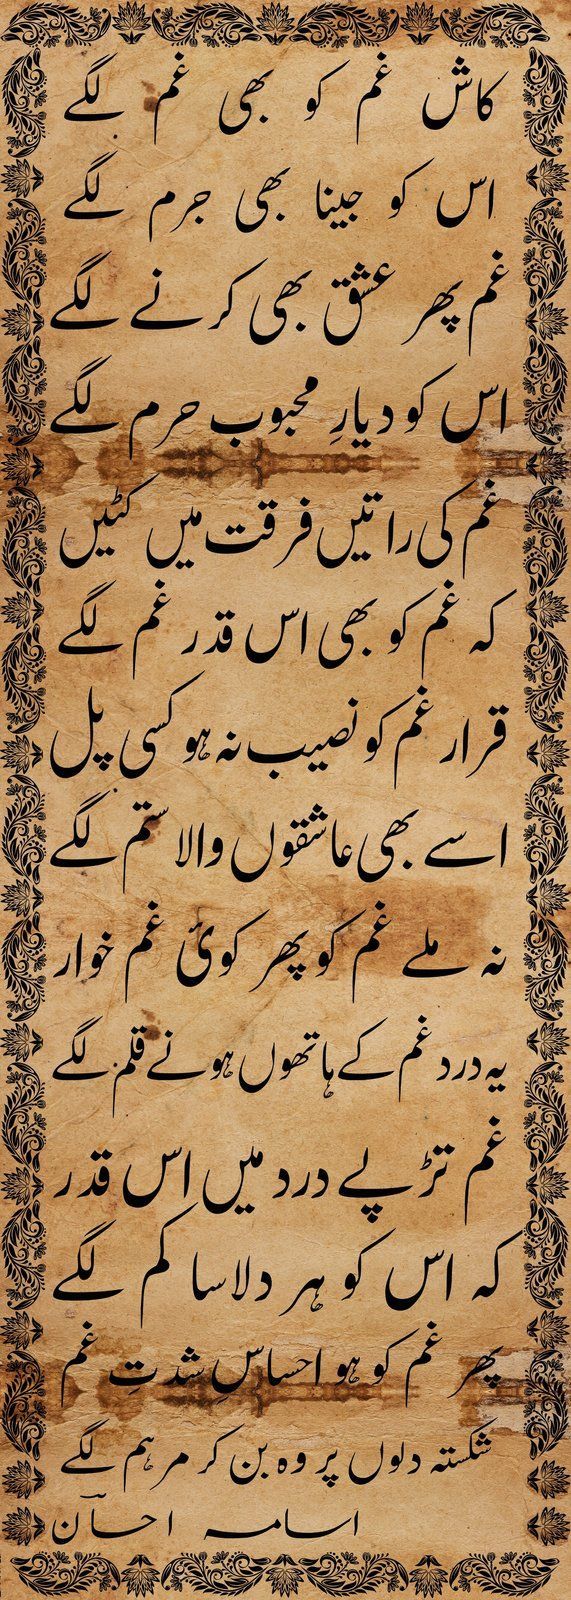 کاش غم کو بھی غم لگے
اس کو جینا بھی جرم لگے
غم پھر عشق بھی کرنے لگے
اس کو دیارِ محبوب حرم لگے
غم کی راتیں فرقت میں کٹیں
کہ غم کو بھی اس قدر غم لگے
قرار غم کو نصیب نہ ہو کسی پل
اسے بھی عاشقوں والا ستم لگے
نہ ملے غم کو پھر کوئ غم خوار
یہ درد غم کے ہاتھوں ہونے قلم لگے
غم تڑپے درد میں اس قدر
کہ اس کو ہر دلاسا کم لگے
پھر غم کو ہو احساسِ شدتِ غم
شکستہ دلوں پر وہ بن کر مرہم لگے
اسامہ احسان